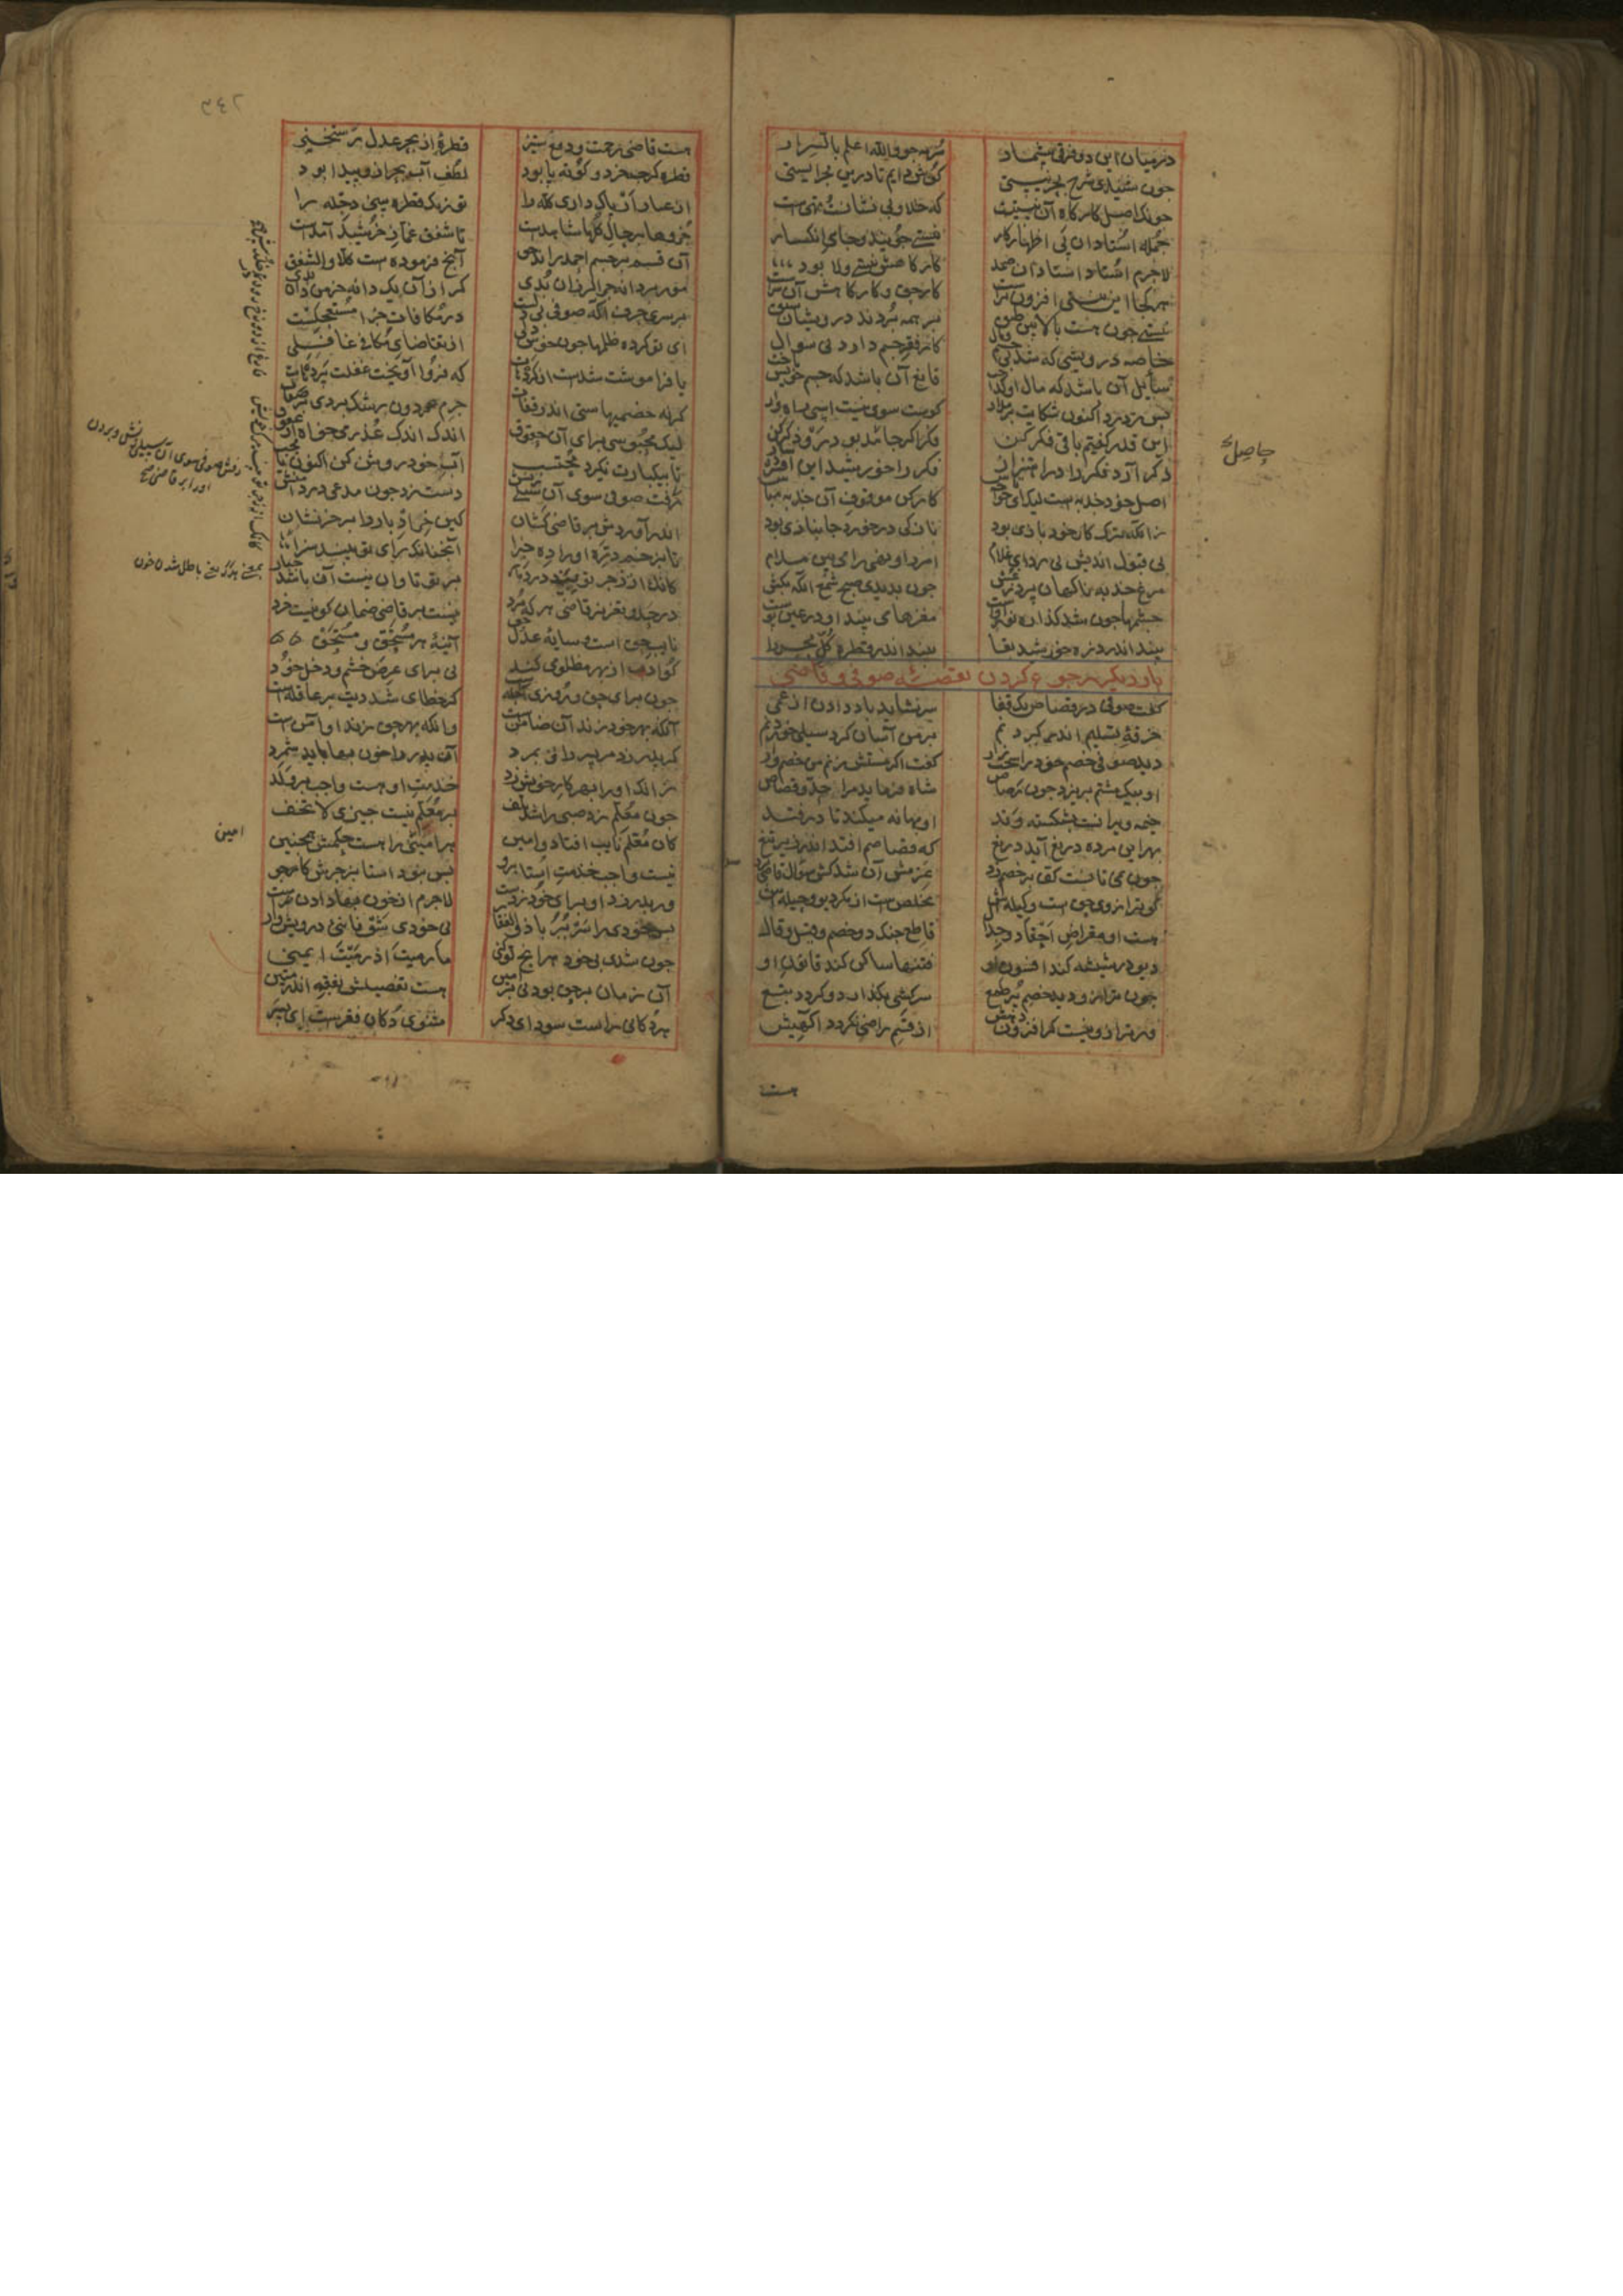 درمیان این دو فرقی بیشمار سرمه جو والله اعلم بالسرار
چون شنیدی شرح بحر نیستی کوش دایم تا درین بحر ایستی
چونک اصل کارگاه آن نیستیست که خلا و بی نشانست و تهیست
جمله استادان پی اظهار کار نیستی جویند و جای انکسار
لاجرم استاد استادان صمد کارگاهش نیستی و لا بود
هر کجا این نیستی افزون‌ترست کار حق و کارگاهش آن سرست
نیستی چون هست بالایین طبق بر همه بردند درویشان سبق
خاصه درویشی که شد بی جسم و مال کار فقر جسم دارد نی سوال
سایل آن باشد که مال او گداخت قانع آن باشد که جسم خویش باخت
پس ز درد اکنون شکایت بر مدار کوست سوی نیست اسپی راهوار
این قدر گفتیم باقی فکر کن فکر اگر جامد بود رو ذکر کن
ذکر آرد فکر را در اهتزاز ذکر را خورشید این افسرده ساز
اصل خود جذبه است لیک ای خواجه تاش کار کن موقوف آن جذبه مباش
زانکه ترک کار خود نازی بود ناز کی در خورد جانبازی بود
نی قبول اندیش نی رد ای غلام امر را و نهی را می بین مدام
مرغ جذبه ناگهان پرد ز عش چون بدیدی صبح شمع آنگه بکش
چشمها چون شد گذاره نور اوست مغزها می بیند او در عین پوست
بیند اندر ذره خورشید بقا بیند اندر قطره کل بحر را
بار دیگر رجوع کردن بقصهٔ صوفی و قاضی
گفت صوفی در قصاص یک قفا سر نشاید باد دادن از عمی
خرقهٔ تسلیم اندر گردنم بر من آسان کرد سیلی خوردنم
دید صوفی خصم خود را سخت زار گفت اگر مشتش زنم من خصم وار
او بیک مشتم بریزد چون رصاص شاه فرماید مرا حد و قصاص
خیمه ویرانست بشکسته وتد او بهانه میکند تا درفتد
بهر این مرده دریغ آید دریغ که قصاصم افتد اندر زیر تیغ
چون نمی تانست کف بر خصم زد عزمش آن شد کش سوی قاضی برد
که ترازوی حق است و کیله‌اش مخلص است از مکر دیو و حیله‌اش
هست او مقراض احقاد و جدال قاطع جنگ دو خصم و قیل و قال
دیو در شیشه کند افسون او فتنها ساکن کند قانون او
چون ترازو دید خصم پر طمع سرکشی بگذارد و گردد تبع
ور ترازو نیست گر افزون دهیش از قسم راضی نگردد آگهیش
هست
حاصل
هست قاضی رحمت و دفع ستیز قطرهٔ از بحر عدل رستخیز
قطره گرچه خرد و کوته پا بود لطف آب بحر ازو پیدا بود
از غبار ار پاک داری کله را تو ز یک قطره ببینی دجله را
جزوها بر حال کلها شاهدست تا شفق غماز خورشید آمدست
آن قسم بر جسم احمد راند حق آنچ فرموده است کلا والشفق
مور بر دانه چرا لرزان بدی گر از آن یک دانه خرمن دان بدی
بر سر حرف آ که صوفی بی دلست در مکافات جزا مستعجلست
ای تو کرده ظلمها چون خوش دلی از تقاضای مکافی غافلی
یا فراموشت شدست از کرده‌هات که فرو آویخت غفلت پرده‌هات
گر نه خصمیهاستی اندر قفات جرم گردون رشک بردی بر صفات
لیک محبوسی برای آن حقوق اندک اندک عذر می خواه از عقوق
تا بیکبارت نگیرد محتسب آب خود روشن کن اکنون با محب
رفت صوفی سوی آن سیلی زنش دست زد چون مدعی در دامنش
اندر آوردش بر قاضی کشان کین خر ادبار را بر خر نشان
یا بزخم دره او را ده جزا آنچنانک رای تو بیند سزا
کانک از زجر تو میرد در دمار بر تو تاوان نیست آن باشد جبار
در حد و تعزیر قاضی هر که مرد نیست بر قاضی ضمان کو نیست خرد
نایب حق است و سایهٔ عدل حق آینهٔ هر مستحق و مستحق
کو ادب از بهر مظلومی کند نی برای عرض و خشم و دخل خود
چون برای حق و روز آجله است گر خطایی شد دیت بر عاقله است
آنکه بهر خود زند آن ضامنست وانکه بهر حق زند او آمنست
گر پدر زد مر پسر را و بمرد آن پدر را خون بها باید شمرد
زانک او را بهر کار خویش زد خدمت او هست واجب بر ولد
چون معلم زد صبی را شد تلف بر معلم نیست چیزی لا تخف
کان معلم نایب افتاد و امین هر امینی را هست حکمش همچنین
نیست واجب خدمت استا برو پس نبود استا بزجرش کارجو
ور پدر زد او برای خود زدست لاجرم از خون بها دادن نرست
پس خودی را سر ببر با ذوالفقار بی خودی شو فانیی درویش وار
چون شدی بی خود هر آنچ تو کنی ما رمیت اذ رمیت ایمنی
آن ضمان بر حق بود نی بر امین هست تفصیلش بفقه اندر مبین
هر دکانی راست سودای دگر مثنوی دکان فقرست ای پسر
رفتن صوفی سوی آن سیلی زنش و بردن
او را بر قاضی
امین